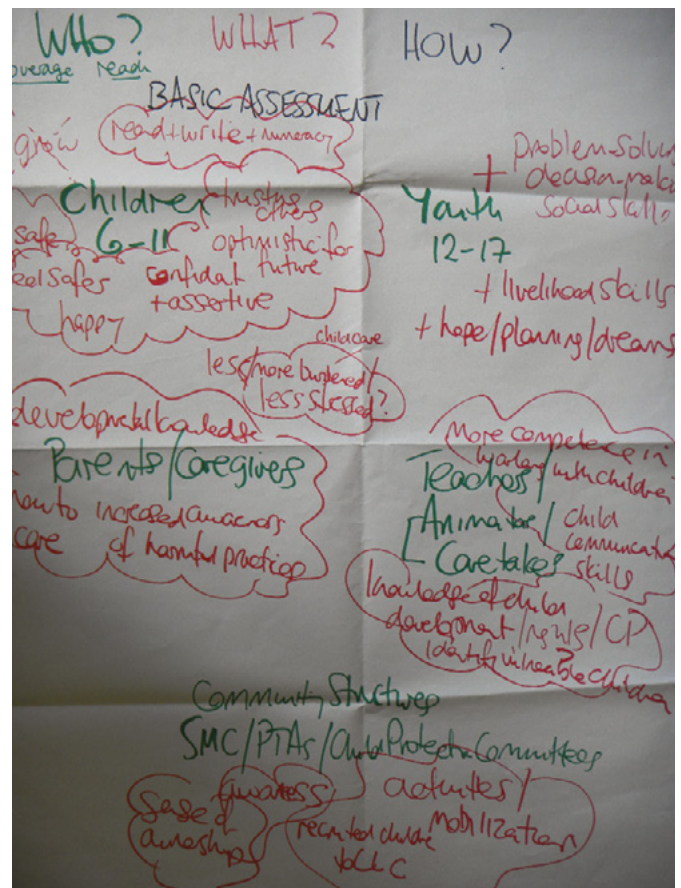 WHO? WHAT? HOW?
overage reach
BASIC ASSESSMENT
grow read+write+numeracy
+ problem-solving
decision-making
social skills
Children trusting others
6-11
Youth
12-17
safe optimistic for future
feel safer confidant
+assertive
happy
+ livelihood skills
+ hope/planning/dreams
childcare
less/more burdened/
less stressed?
developmental knowledge
Parents/Caregivers
how to increased awareness
care of harmful practices
More competence in
working with children
Teachers/
Animators/
Caretakers
child
communication
skills
knowledge of child
development/rights/CP
identify vulnerable children
Community Structures
SMC/PTAs/Child Protection Committees
awareness
sense of
ownership
activities/
mobilization
recruited children
to CLC